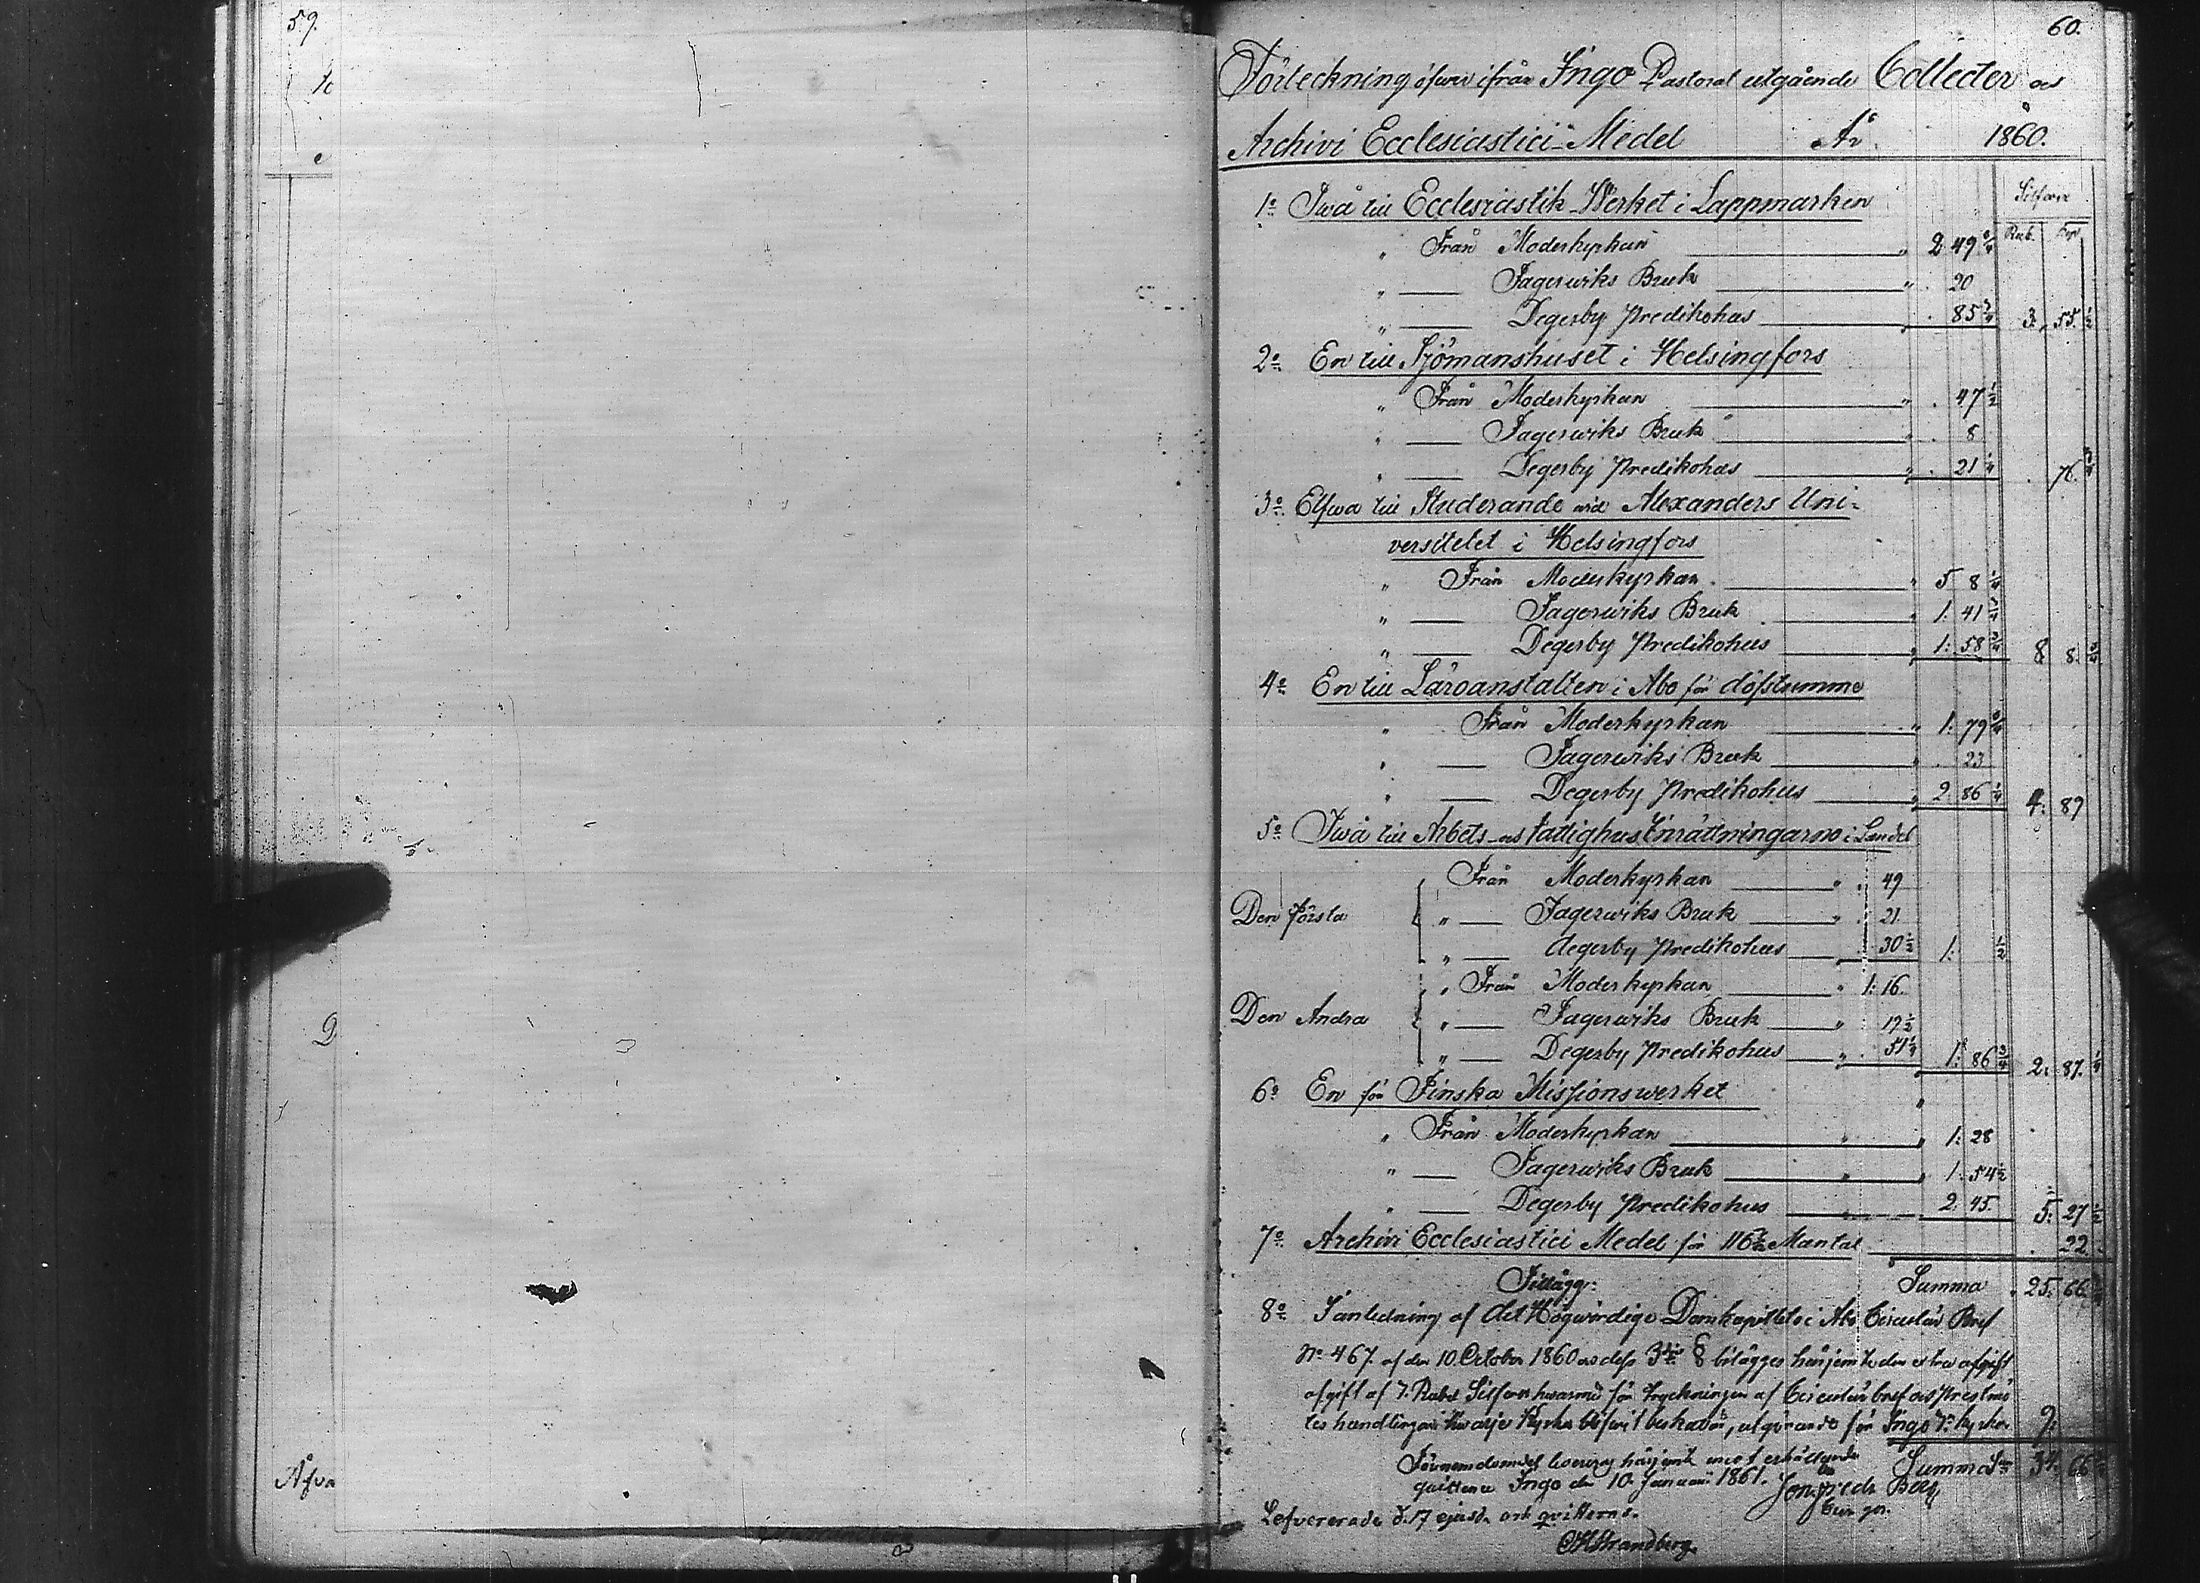 59.
60.
Förteckning öfwer ifrån Ingo Pastorat utgående Collecter och
Archivi Ecclesiastici-Medel År 1860.
Silfwer
Rub. Kop.
1o Twå till Ecclesiastik-Werket i Lappmarken
" Från Moderkyrkan " 2 49 3/4
" — Fagerwiks Bruk " 20
" — Degerby Predikohus " 85 3/4 3. 55 1/2
2o En till Sjömanshuset i Helsingfors
" Från Moderkyrkan " 47 1/2
" — Fagerwiks Bruk " 8
" — Degerby Predikohus " 21 1/4 76 3/4
3o Elfwa till Studerande wid Alexanders Uni-
versitetet i Helsingfors
" Från Moderkyrkan " 5 8 1/4
" — Fagerwiks Bruk " 1: 41 3/4
" — Degerby Predikohus " 1: 58 3/4 8 8 3/4
4o En till Läroanstalten i Åbo för döfstumme
" Från Moderkyrkan " 1: 79 3/4
" — Fagerwiks Bruk " 23
" — Degerby Predikohus " 2 86 1/4 4: 89
5o Twå till Arbets- och fattighus Inrättningarne i Landet
Från Moderkyrkan " 49
Den första " — Fagerwiks Bruk " 21
" — degerby Predikohus 30 1/2 1: 1/2
" Från Moderkyrkan " 1: 16
Den Andra " — Fagerwiks Bruk " 19 1/2
" — Degerby Predikohus " 51 1/4 1: 86 3/4 2. 87. 1/4
6o En för Finska Missionswerket
" Från Moderkyrkan " 1: 28
" — Fagerwiks Bruk " 1. 54 1/2
" — Degerby Predikohus " 2. 45. 5: 27 1/2
7o Archivi Ecclesiastici Medel för Mantal 22
Tillägg: Summa 25. 66
8o I anledning af det Högwördige Domkapitlets i Åbo Circulär Bref
No 467 af den 10 October 1860 och dess 3die § bilägges härjemte den extra afgift
afgift af 7. Rubel Silfwer hwarmed för tryckningen af Circulär bref och Prestmö
tes handlingar hwarje Kyrka blifwit beskattad, utgörande för Ingo Kyrkor 9:
Förenemdemedel lewereras härjemte emot erhållande Summa 34. 66
quittence Ingo den 10 Januari 1861. Jon. Fredr. Berg
Lefvererade d. 17 ejusd. och qvitterас.
CHStrandberg